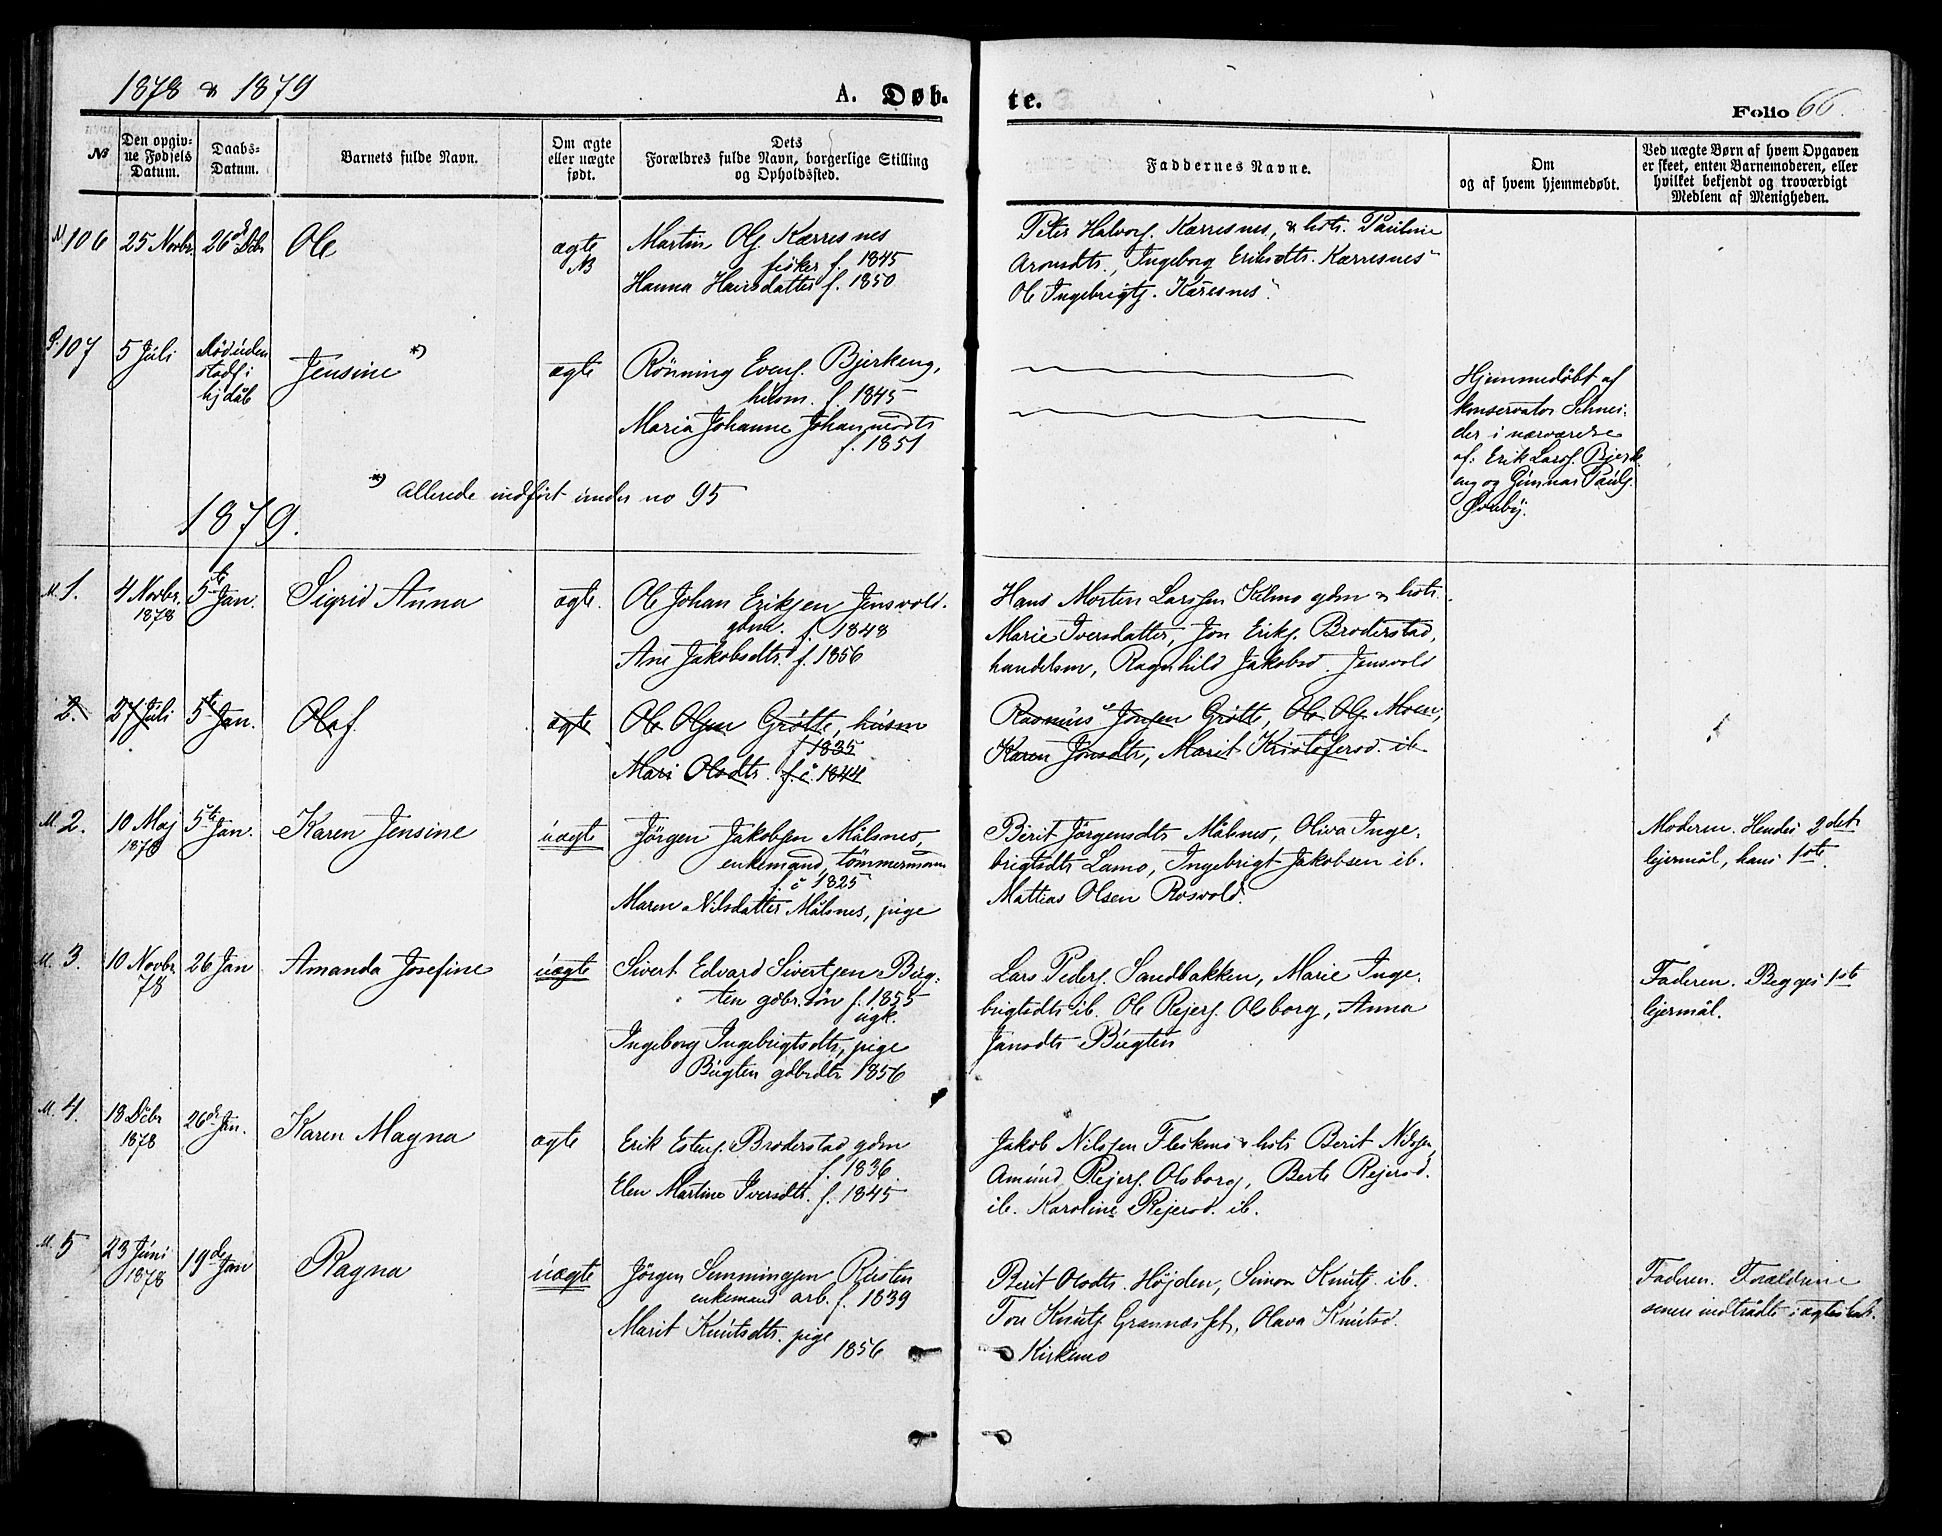 1878 & 1879
A. Døb-
te.
Folio 66.
No
Den opgiv-
ne Fødsels
Datum.
Daabs-
Datum.
Barnets fulde Navn.
Om ægte
eller uægte
født.
Dets
Forældres fulde Navn, borgerlige Stilling
og Opholdssted.
Faddernes Navne.
Om
og af hvem hjemmedøbt.
Ved uægte Børn af hvem Opgaven
er skeet, enten Barnemoderen, eller
hvilket bekjendt og troværdigt
Medlem af Menigheden.
106 25 Novbr. 26de Dcbr Ole ægte
NB
Martin Ols. Kærresnes
fisker f. 1845
Hanna Hansdatter f. 1850
Peter Halvors. Kærresnes, & hst. Pauline
Aronsdtr., Ingeborg Eriksdtr. Kærresnes
Ole Ingebrigts. Kæresnes.
107 5 Juli
Død uden
stadf:
hjdåb
Jensine *) ægte
Rönning Evens. Bjerkeng,
husm. f. 1845
Maria Johanne Johannesdtr
f. 1851
Hjemmedöbt af
konservator Schnei-
der i nærværelse
af: Erik Lars. Bjerk-
eng og Gunnar Påuls.
Øverby.
*) Allerede indført under no 95
1879.
M. 1. 4 Novbr. 1878 5te Jan. Sigrid Anna ægte.
Ole Johan Eriksen Jensvold.
gbm. f. 1848
Ane Jakobsdtr. f. 1856
Hans Morten Larssen Kilmo gdm & hst.
Marie Iversdatter, Jon Eriks. Broderstad,
handelsm, Ragnhild Jakobsd. Jensvold
2. 27 Juli 5te Jan. Olaf ægte
Ole Olsen Grötte, husm
f 1835
Mari Olsdtr. f. i 1844
Rasmus Jonsen Grötte, Ole Ols. Moen,
Karen Jonsdtr, Marit Kristofersd. ib
M. 2. 10 Maj 1878 5te Jan. Karen Jensine uægte
Jörgen Jakobsen Målsnes,
enkemand, tömmermann
f. i 1825
Maren Nilsdatter Målsnes, pige
Berit Jörgensdtr Målsnes, Oliva Inge-
brigtsdtr Lamo, Ingebrigt Jakobsen ib.
Mattias Olsen Rosvold.
Moderen. Hendes 2det
lejermål, hans 1ste
M. 3. 10 Novbr. 78 26 Jan Amanda Josefine uægte
Sivert Edvard Sivertsen Bug-
ten gdbr.sön f. 1855
ugk.
Ingeborg Ingebrigtsdtr, pige
Bugten gdbrdtr 1856
Lars Peders. Sandbakken, Marie Inge-
brigtsdtr ib. Ole Rejers. Olsborg, Anna
Jansdtr Bugten
Faderen. Begges 1ste
lejermål.
M. 4. 18 Dcbr 1878 26de Jan. Karen Magna ægte
Erik Estens. Broderstad gdm
f. 1836
Elen Martine Iversdtr. f. 1845
Jakob Nilssen Fleskmo & hst. Berit Nilssen,
Amund Rejers. Olsborg, Berte Rejersd.
ib. Karoline Rejersd. ib.
M. 5 23 Juni 1878 19de Jan Ragna uægte
Jörgen Semmingsen Rusten
enkemand arb. f. 1839
Marit Knutsdtr. pige
1856
Berit Olsdtr. Højden, Simon Knuts. ib.
Tore Knuts. Grannæsset, Olava Knutsd.
Kirkmo
Faderen. Forældrene
senere indtrådte i ægteskab.